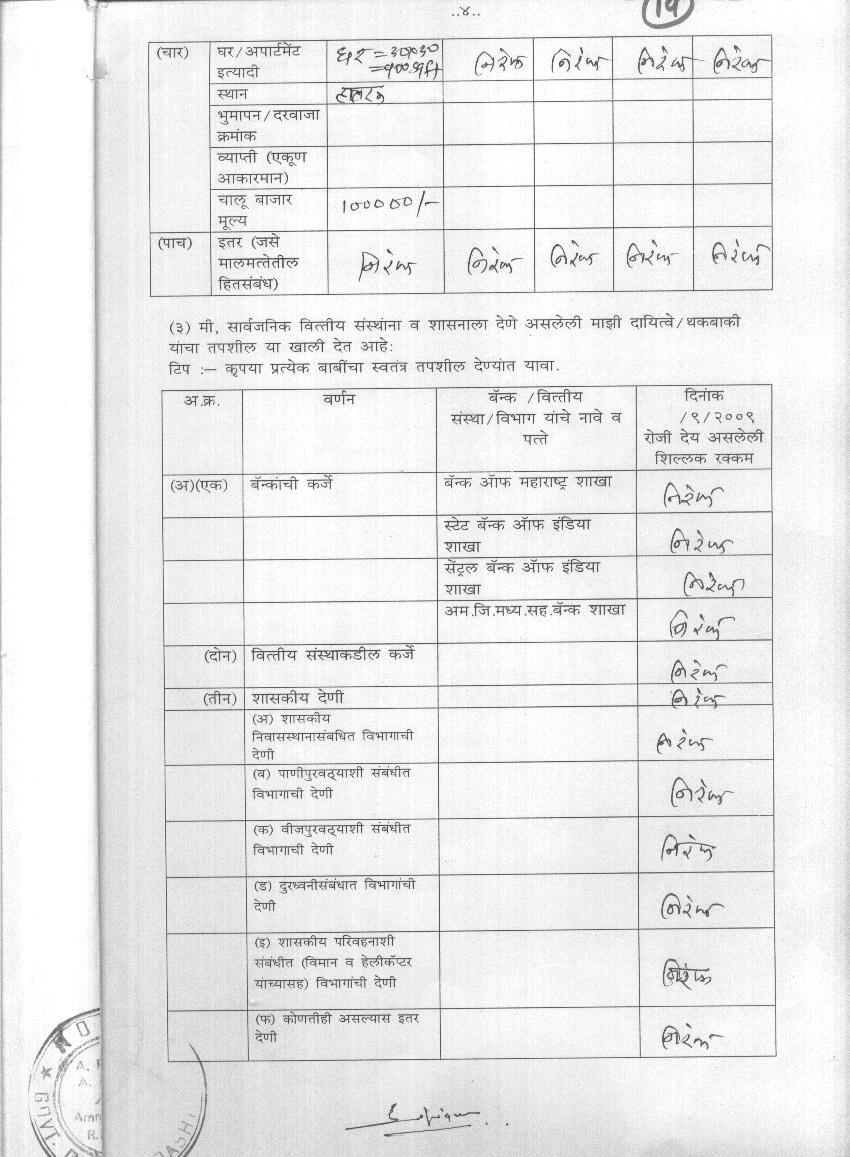 ..४..
(चार) घर/अपार्टमेंट इत्यादी घर = ३०x३० = ९०० निरंक निरंक निरंक निरंक
स्थान
भुमापन/दरवाजा क्रमांक
व्याप्ती (एकूण आकारमान)
चालू बाजार मूल्य 100000/-
(पाच) इतर (जसे मालमत्तेतील हितसंबंध) निरंक निरंक निरंक निरंक निरंक
(३) मी, सार्वजनिक वित्तीय संस्थांना व शासनाला देणे असलेली माझी दायित्वे/थकबाकी
यांचा तपशील या खाली देत आहे:
टिप :— कृपया प्रत्येक बाबींचा स्वतंत्र तपशील देण्यांत यावा.
अ.क्र. वर्णन बॅन्क /वित्तीय संस्था/विभाग यांचे नावे व पत्ते दिनांक /९/२००९ रोजी देय असलेली शिल्लक रक्कम
(अ)(एक) बॅंकांची कर्जे बॅन्क ऑफ महाराष्ट्र शाखा निरंक
स्टेट बॅन्क ऑफ इंडिया शाखा निरंक
सेंट्रल बॅन्क ऑफ इंडिया शाखा निरंक
अम.जि.मध्य.सह.बॅन्क शाखा निरंक
(दोन) वित्तीय संस्थाकडील कर्जे निरंक
(तीन) शासकीय देणी निरंक
(अ) शासकीय निवासस्थानासंबधित विभागाची देणी निरंक
(ब) पाणीपुरवठ्याशी संबंधीत विभागाची देणी निरंक
(क) वीजपुरवठ्याशी संबंधीत विभागाची देणी निरंक
(ड) दुरध्वनीसंबंधात विभागांची देणी निरंक
(इ) शासकीय परिवहनाशी संबंधीत (विमान व हेलीकॅप्टर यांच्यासह) विभागांची देणी निरंक
(फ) कोणतीही असल्यास इतर देणी निरंक
GOVT.